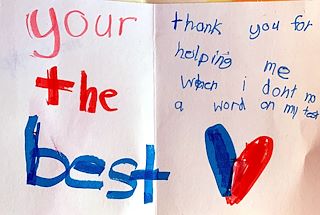 your
the
best
thank you for
helping me
when i dont no
a word on my test